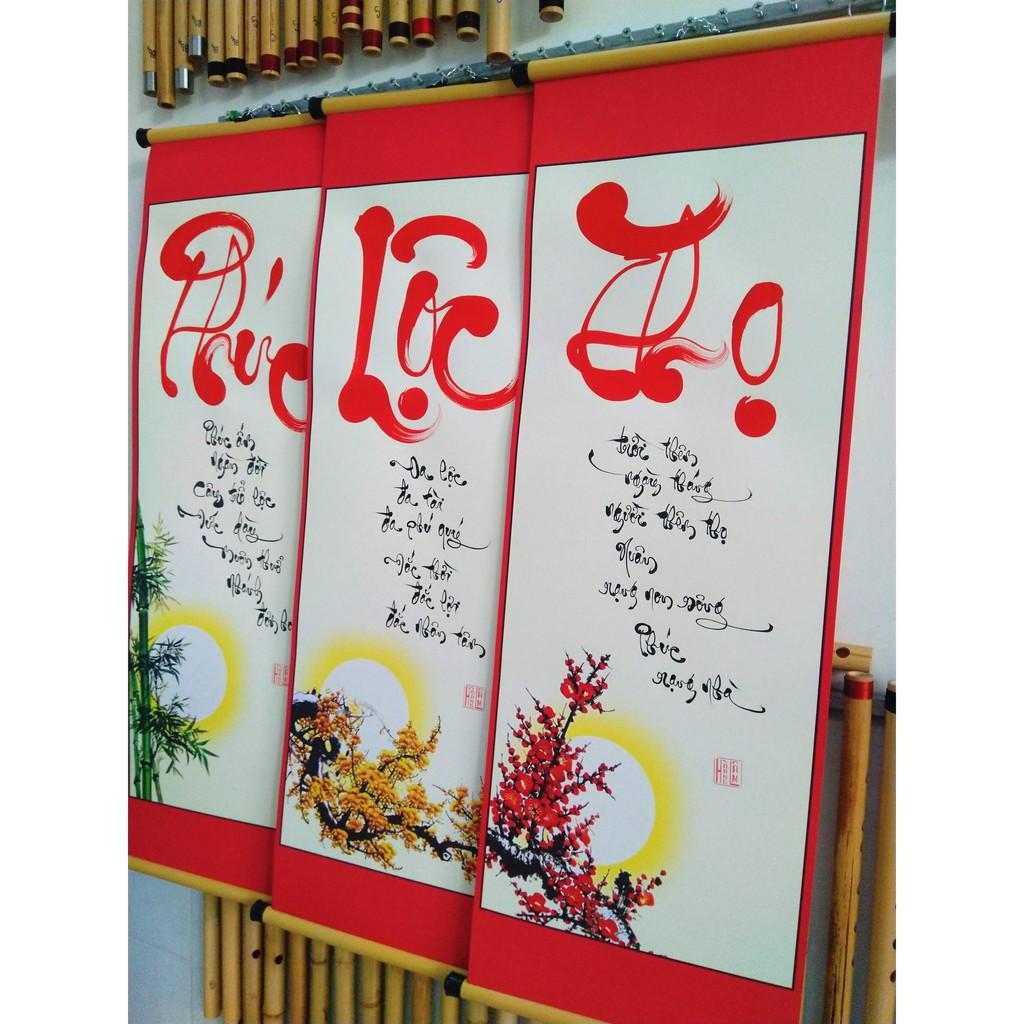 Phúc
Phúc ấm
ngàn đời
Công tổ lộc
Đức dày
muôn thuở
Nhánh
Lộc
Đa lộc
đa tài
đa phú quý
Đắc thời
đắc lợi
đắc nhân tâm
Thọ
trời thêm
ngày tháng
người thêm thọ
Xuân
rạng non sông
Phúc
rạng nhà